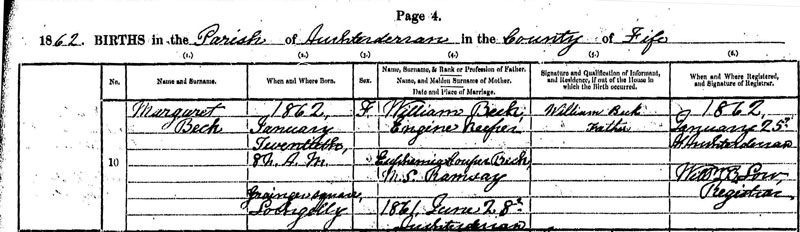 Page 4.
1862. BIRTHS in the Parish of Auchterderran in the County of Fife
(1.) (2.) (3.) (4.) (5.) (6.)
No. Name and Surname. When and Where Born. Sex. Name, Surname, & Rank or Profession of Father. Name, and Maiden Surname of Mother. Date and Place of Marriage. Signature and Qualification of Informant, and Residence, if out of the House in which the Birth occurred. When and Where Registered, and Signature of Registrar.
10
Margaret
Beck
1862,
January
Twentieth,
8h. A.M.
Grainger square,
Lochgelly
F.
William Beck,
Engine Keeper
Euphemia Couper Beck,
M.S. Ramsay
1861, June 28th
Auchterderran
William Beck
Father
1862,
January 25th
At Auchterderran
Low,
Registrar